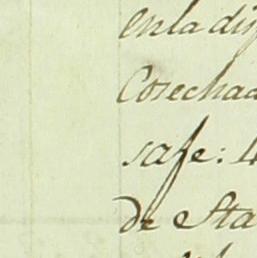 en la dis
Cosechad
safe: 4
de Sta